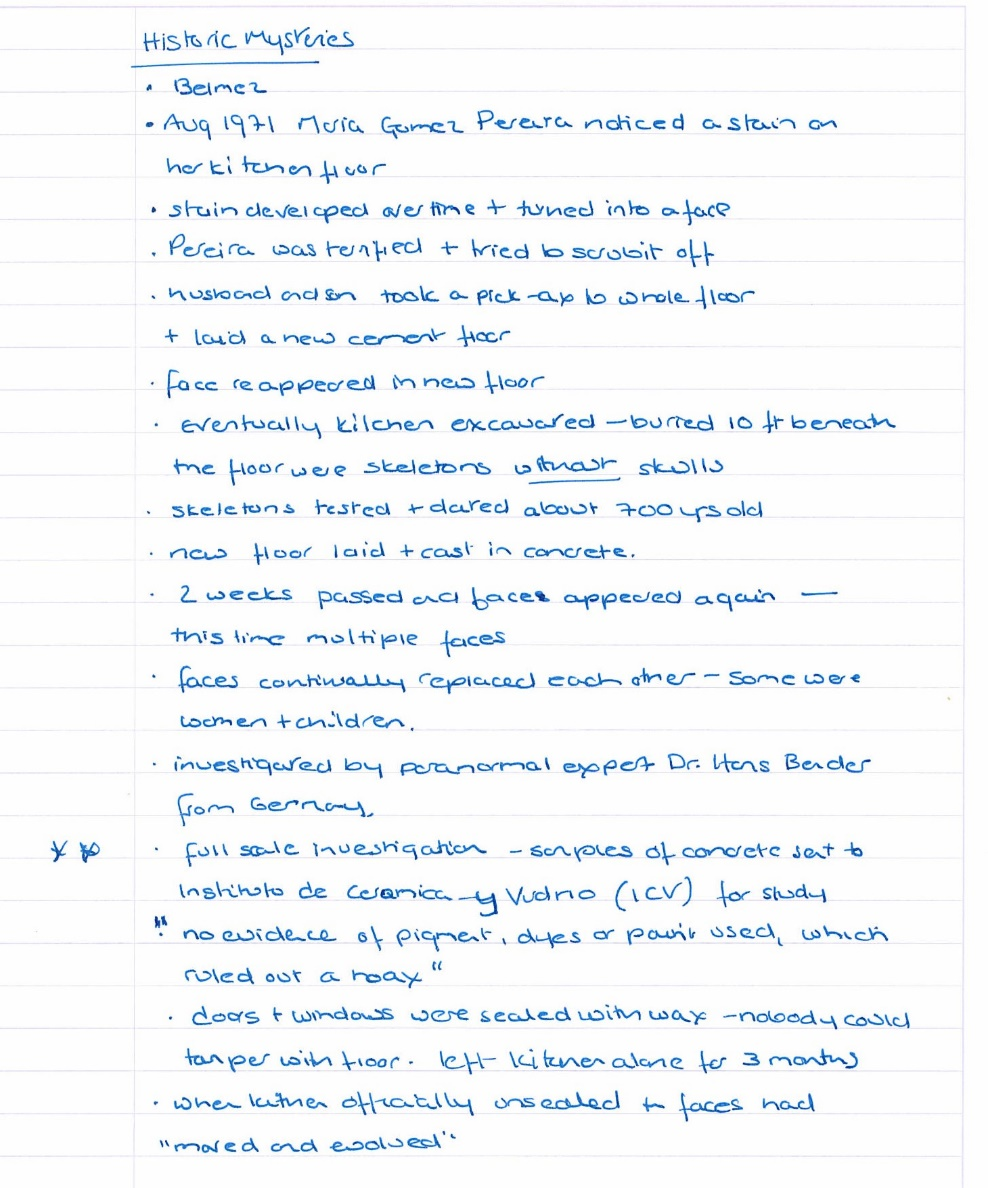 Historic Mysteries
• Belmez
• Aug 1971 Maria Gomez Pereira noticed a stain on
her kitchen floor
• stain developed over time + turned into a face
• Pereira was terrified + tried to scrub it off
• husband and son took a pick-axe to whole floor
+ laid a new cement floor
• face reappeared in new floor
• eventually kitchen excavated – burried 10 ft beneath
the floor were skeletons without skulls
• skeletons tested + dated about 700 yrs old
• new floor laid + cast in concrete.
• 2 weeks passed and faces appeared again —
this time multiple faces
• faces continually replaced each other – some were
women + children.
• investigated by paranormal expert Dr. Hans Bender
from Germany.
• full scale investigation – samples of concrete sent to
Instituto de Ceramica y Vudrio (ICV) for study
" no evidence of pigment, dyes or paint used, which
ruled out a hoax "
• doors + windows were sealed with wax – nobody could
tamper with floor. left kitchen alone for 3 months
• when kitchen officially unsealed the faces had
"moved and evolved"